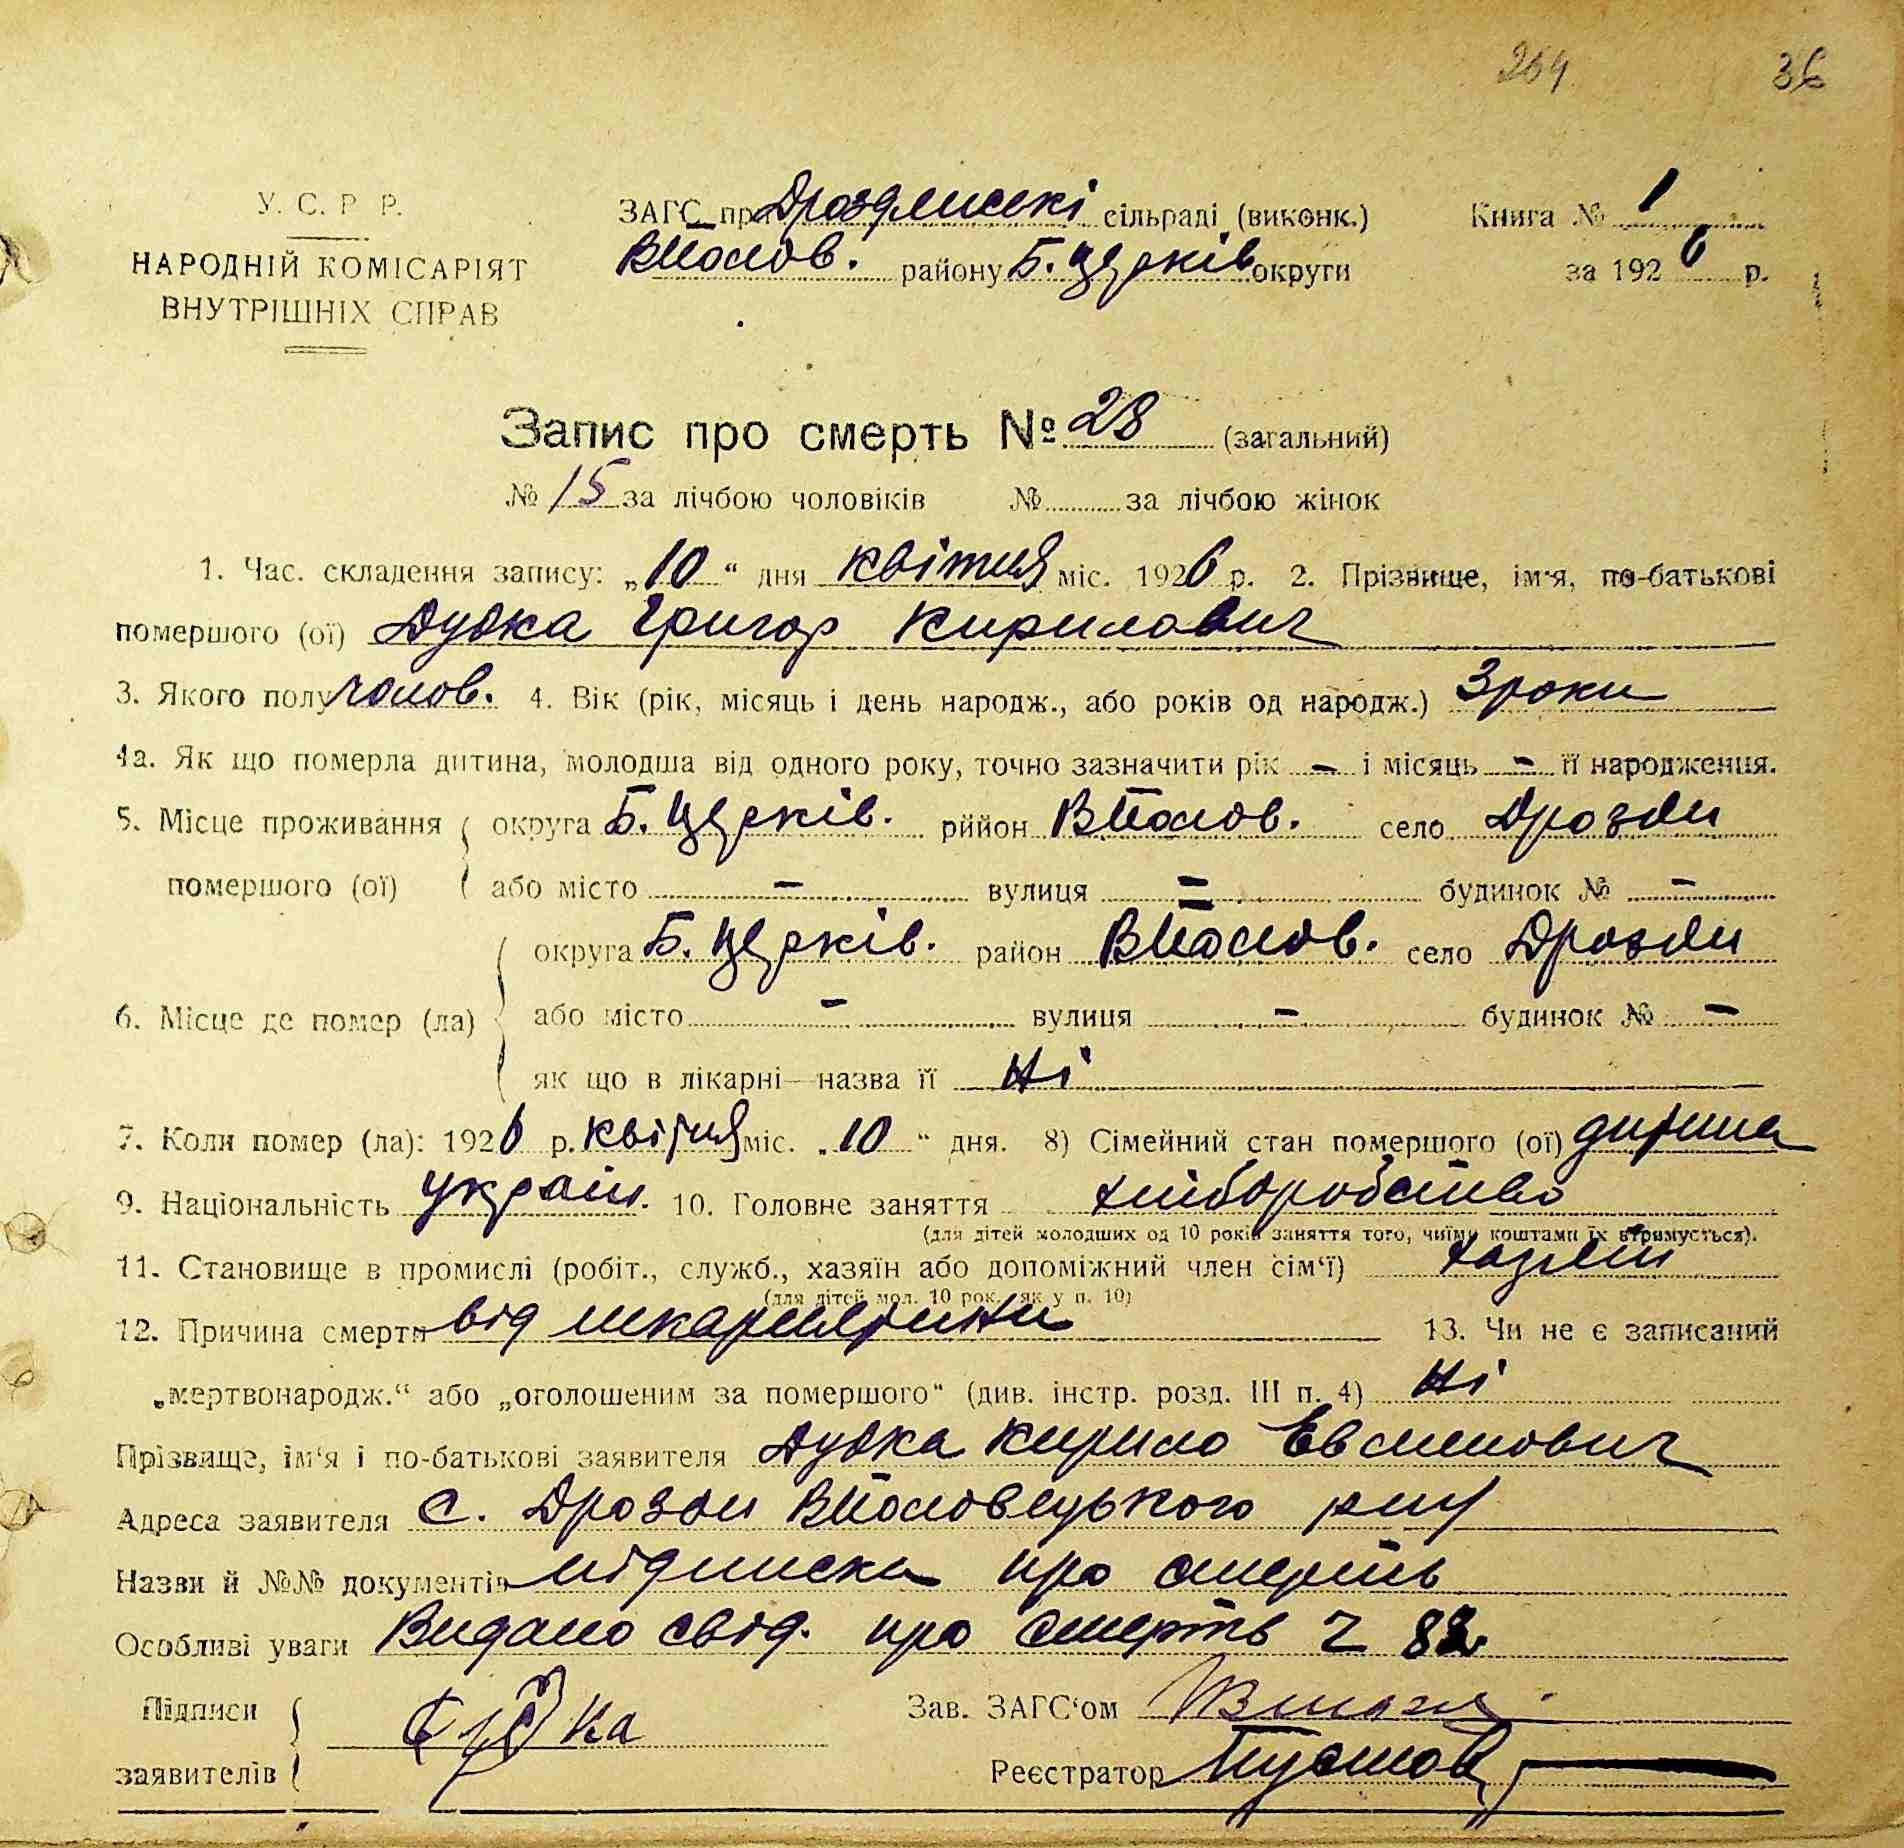 264 36
У. С. Р Р.
НАРОДНІЙ КОМІСАРІЯТ
ВНУТРІШНІХ СПРАВ
ЗАГС при Дроздянські сільраді (виконк.)
ВПолов. району Б. Церків округи
Книга № 1
за 1926 р.
Запис про смерть № 28 (загальний)
№ 15 за лічбою чоловіків № за лічбою жінок
1. Час. складення запису: „10“ дня квітня міс. 1926 р. 2. Прізвище, ім'я, по-батькові
помершого (ої) Дудка Григор Кирилович
3. Якого полу чолов. 4. Вік (рік, місяць і день народж., або років од народж.) 3 роки
4а. Як що померла дитина, молодша від одного року, точно зазначити рік – і місяць – її народження.
5. Місце проживання округа Б. Церків. рййон ВПолов. село Дрозди
помершого (ої) або місто – вулиця – будинок № –
округа Б. Церків. район ВПолов. село Дрозди
6. Місце де помер (ла) або місто – вулиця – будинок № –
як що в лікарні—назва її Ні
7. Коли помер (ла): 1926 р. квітня міс. „10“ дня. 8) Сімейний стан помершого (ої) дитина
9. Національність україн. 10. Головне заняття хліборобство
(для дітей молодших од 10 років заняття того, чиїми коштами їх втримується).
11. Становище в промислі (робіт., служб., хазяїн або допоміжний член сім'ї) хазяїн
(для дітей мол. 10 рок. як у п. 10)
12. Причина смерти від шкарлятини 13. Чи не є записаний
„мертвонародж.“ або „оголошеним за помершого“ (див. інстр. розд. III п. 4) Ні
Прізвище, ім'я і по-батькові заявителя Дудка Кирило Евсимович
Адреса заявителя с. Дрозди ВПоловецького р-ну
Назви й №№ документів підписка про смерть
Особливі уваги Видано свід. про смерть Ч 82
Підписи
заявителів Дудка
Зав. ЗАГС'ом
Реєстратор